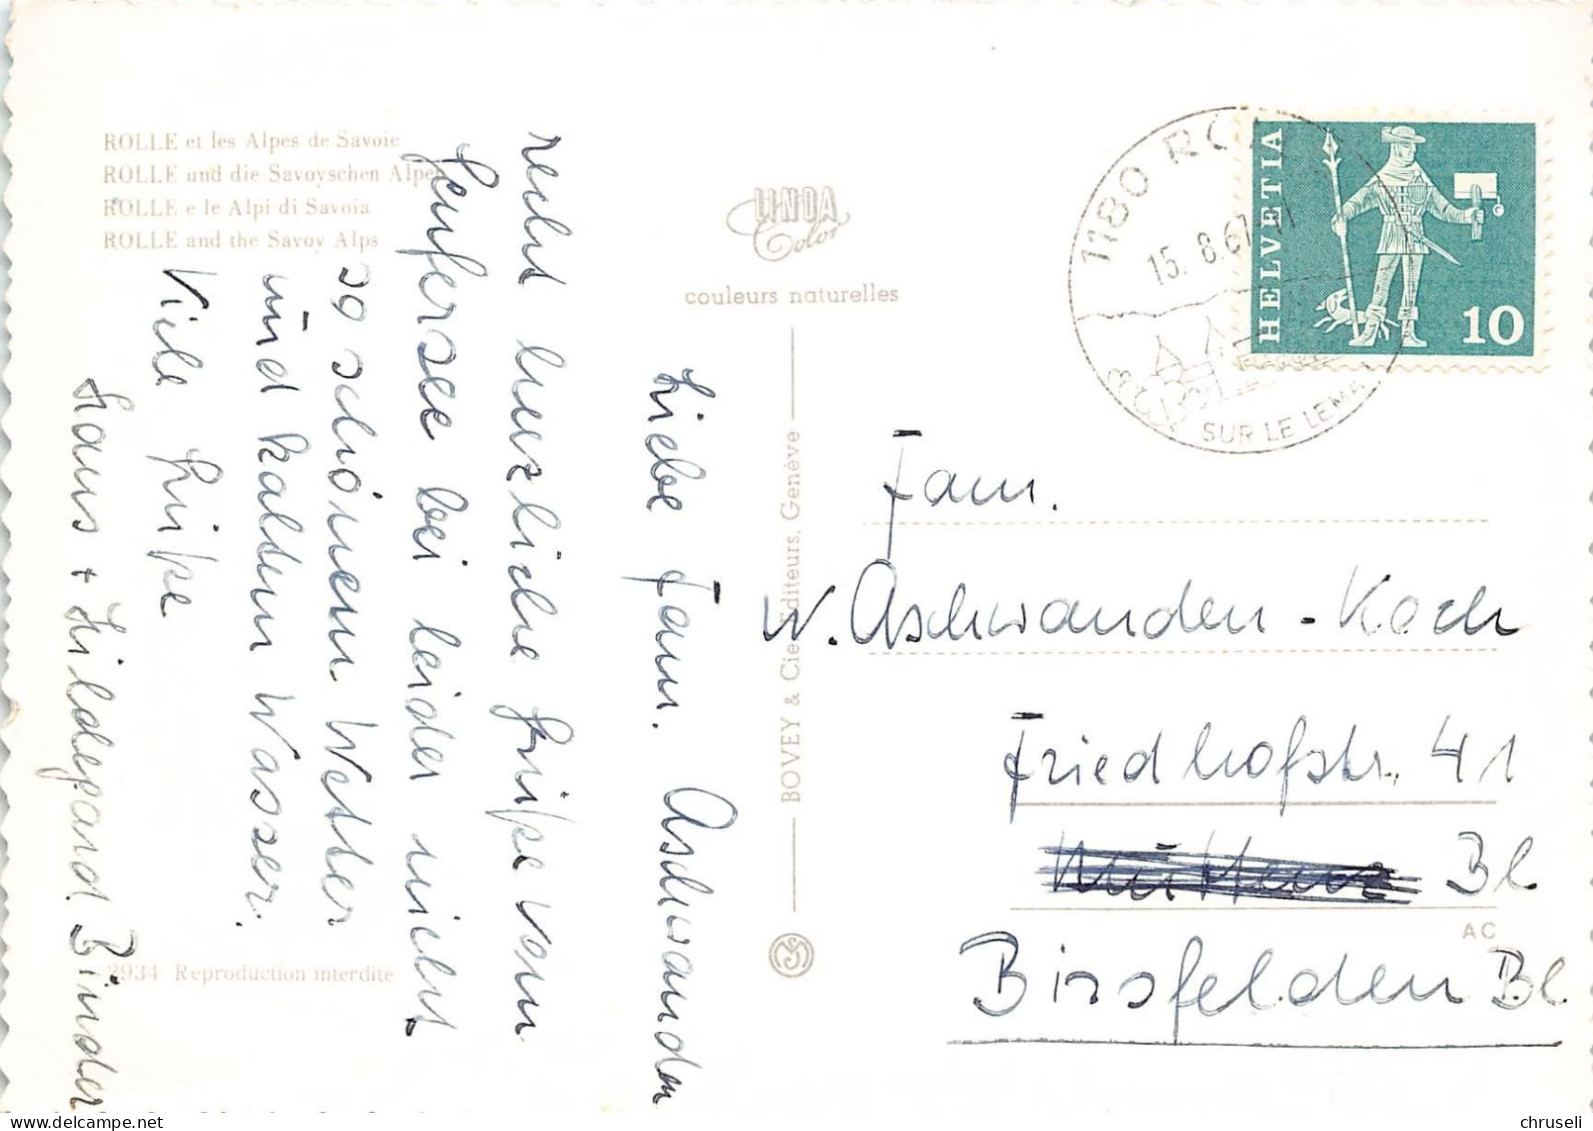 ROLLE et les Alpes de Savoie
ROLLE und die Savoyschen Alpe
ROLLE e le Alpi di Savoia
ROLLE and the Savoy Alps
LINDA
Color
couleurs naturelles
BOVEY & Cie Editeurs, Genève
2934 Reproduction interdite
Liebe Fam. Aschwanden
recht herzliche Grüsse vom
Genfersee bei leider nicht
so schönem Wetter
und kaltem Wasser.
Viele Grüsse
Hans + Hildegard Binder
1180 RO
15. 8. 67
SUR LE LEMA
HELVETIA
10
Fam.
W. Aschwanden-Koch
Friedhofstr. 41
Muttenz Bl
AC
Birsfelden Bl.
delcampe.net
chruseli